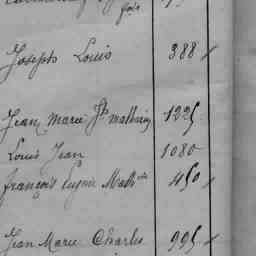 Joseph Louis 388
Jean Marie Jh Mathurin 1225
Louis Jean 1080
François Eugène Math 450
Jean Marie Charles 995